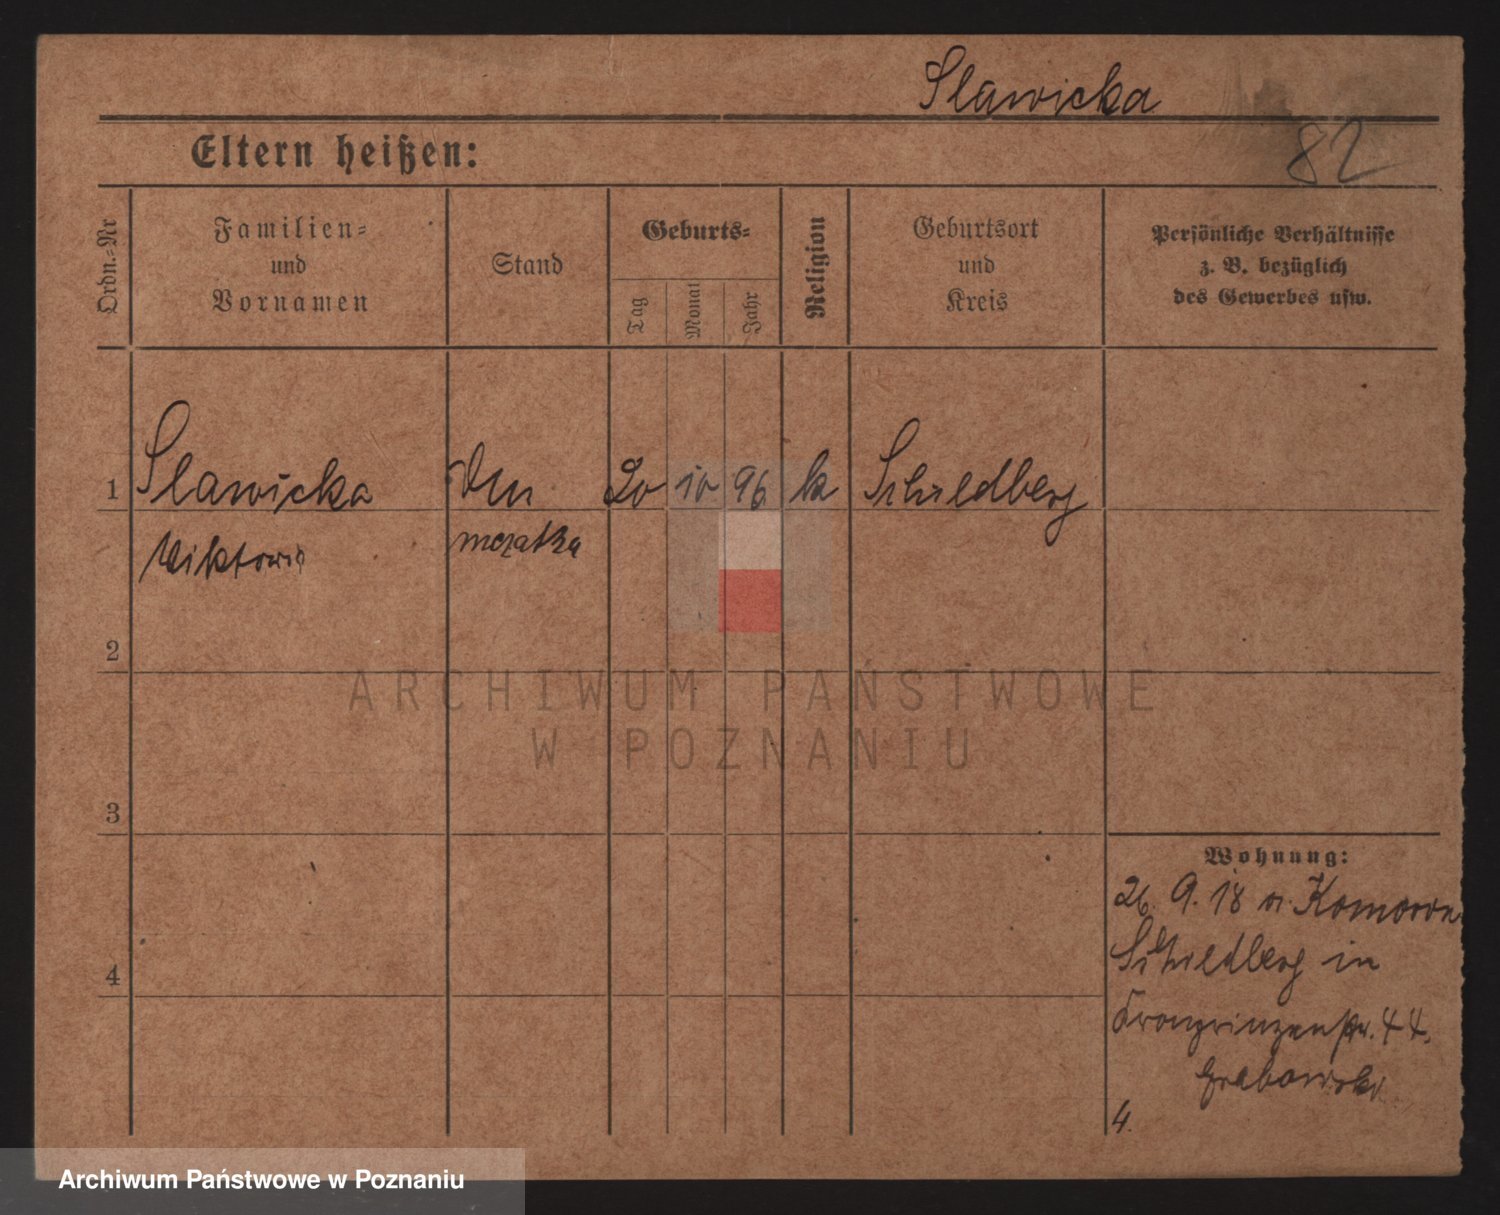 Slawicka
82
Eltern heißen:
Ordn.-Nr
Familien-
und
Vornamen
Stand
Geburts-
Tag
Monat
Jahr
Religion
Geburtsort
und
Kreis
Persönliche Verhältnisse
z. B. bezüglich
des Gewerbes usw.
1 Slawicka 20 10 96 k Schildberg
Viktoria mężatka
2
3
4
ARCHIWUM PAŃSTWOWE
W POZNANIU
Wohnung:
26. 9. 18 v. Komorow
Schildberg in
Kronprinzenstr. 44.
Grabowski
4.
Archiwum Państwowe w Poznaniu